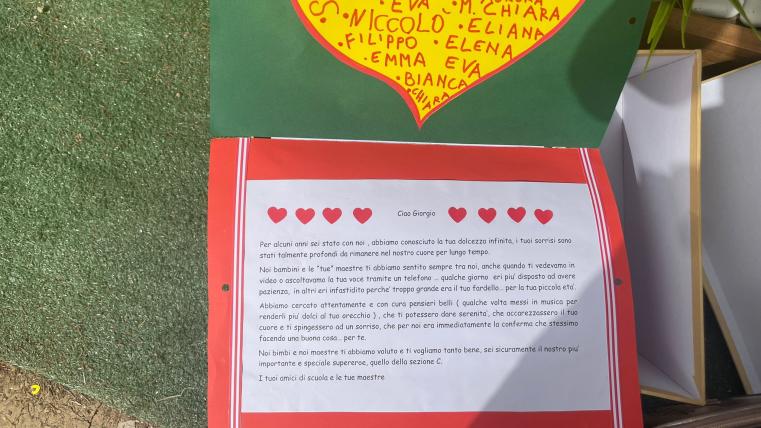 EVA • M. CHIARA
S. • NICCOLO • ELIANA
• FILIPPO • ELENA
• EMMA EVA
• BIANCA
• CHIARA
Ciao Giorgio
Per alcuni anni sei stato con noi , abbiamo conosciuto la tua dolcezza infinita, i tuoi sorrisi sono
stati talmente profondi da rimanere nel nostro cuore per lungo tempo.
Noi bambini e le "tue" maestre ti abbiamo sentito sempre tra noi, anche quando ti vedevamo in
video o ascoltavamo la tua voce tramite un telefono ... qualche giorno eri piu' disposto ad avere
pazienza, in altri eri infastidito perche' troppo grande era il tuo fardello... per la tua piccola eta'.
Abbiamo cercato attentamente e con cura pensieri belli ( qualche volta messi in musica per
renderli piu' dolci al tuo orecchio ) , che ti potessero dare serenita', che accarezzassero il tuo
cuore e ti spingessero ad un sorriso, che per noi era immediatamente la conferma che stessimo
facendo una buona cosa... per te.
Noi bimbi e noi maestre ti abbiamo voluto e ti vogliamo tanto bene, sei sicuramente il nostro piu'
importante e speciale supereroe, quello della sezione C.
I tuoi amici di scuola e le tue maestre